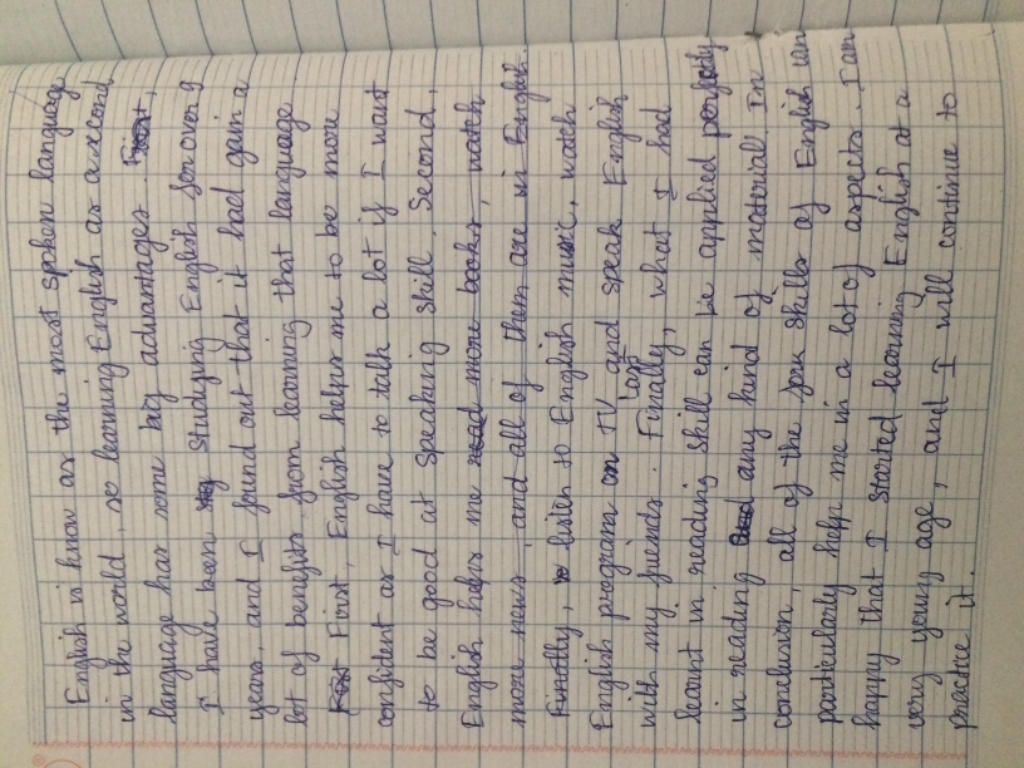 English is know as the most spoken language
in the world, so learning English as a second
language has some big advantages.
I have been studying English for over 9
years, and I found out that it had gain a
lot of benefits from learning that language
First, English helps me to be more
confident as I have to talk a lot if I want
to be good at speaking skill. Second,
English helps me read more books, watch
more news, and all of them are in English.
listen to English music, watch
English program on TV and speak English
with my friends. Finally, what I had
learnt in reading skill can be applied perfectly
in reading any kind of material. In
conclusion, all of the four skills of English can
particularly help me in a lot of aspects. I am
happy that I started learning English at a
very young age, and I will continue to
practice it.